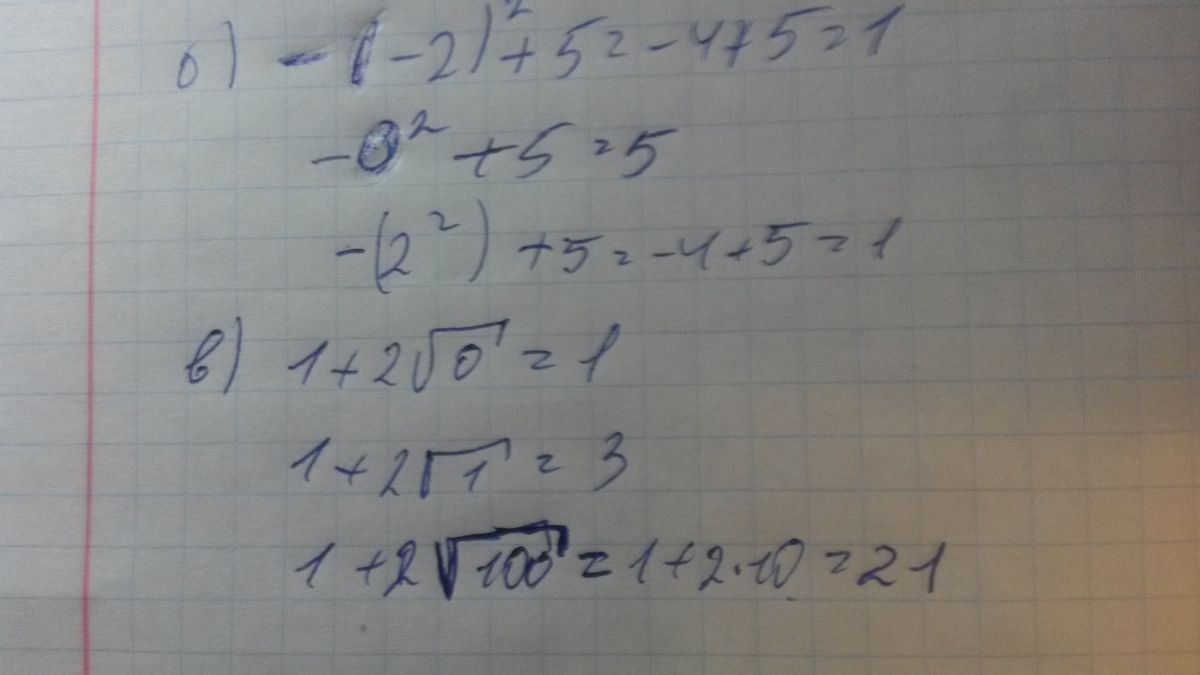 б) -(-2)² + 5 = -4 + 5 = 1
-0² + 5 = 5
-(2²) + 5 = -4 + 5 = 1
в) 1 + 2√0 = 1
1 + 2√1 = 3
1 + 2√100 = 1 + 2·10 = 21